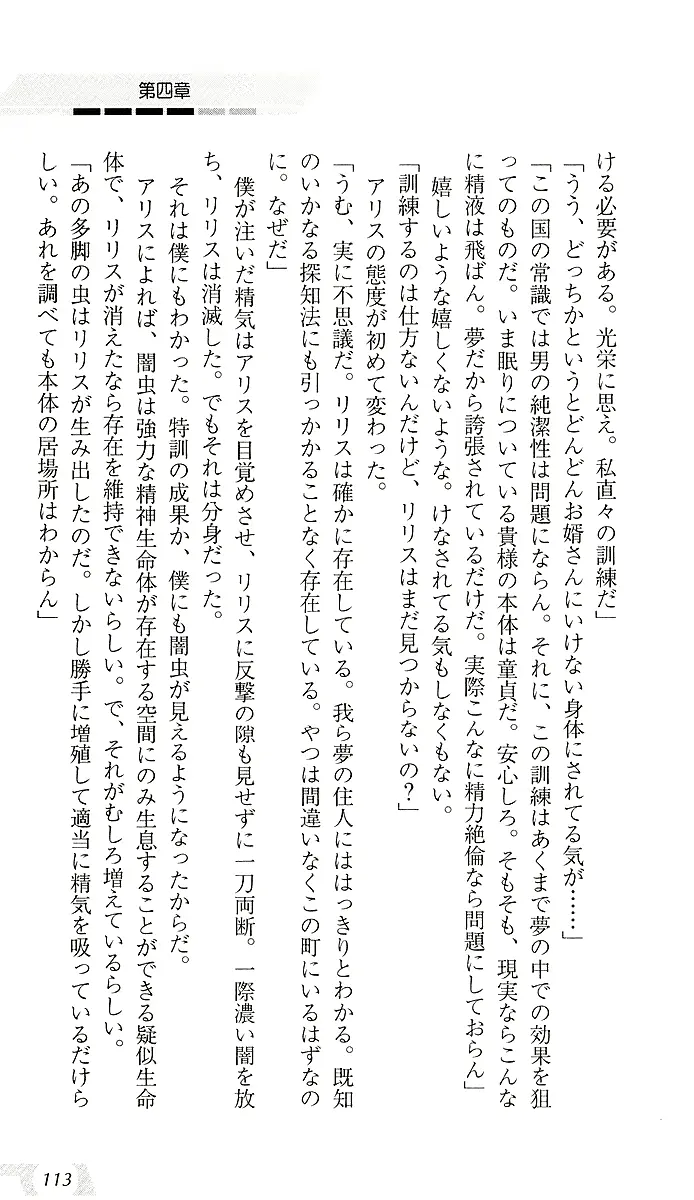 第四章
ける必要がある。光栄に思え。私直々の訓練だ」
「うう、どっちかというとどんどんお婿さんにいけない身体にされてる気が……」
「この国の常識では男の純潔性は問題にならん。それに、この訓練はあくまで夢の中での効果を狙
ってのものだ。いま眠りについている貴様の本体は童貞だ。安心しろ。そもそも、現実ならこんな
に精液は飛ばん。夢だから誇張されているだけだ。実際こんなに精力絶倫なら問題にしておらん」
嬉しいような嬉しくないような。けなされてる気もしなくもない。
「訓練するのは仕方ないんだけど、リリスはまだ見つからないの？」
アリスの態度が初めて変わった。
「うむ、実に不思議だ。リリスは確かに存在している。我ら夢の住人にははっきりとわかる。既知
のいかなる探知法にも引っかかることなく存在している。やつは間違いなくこの町にいるはずなの
に。なぜだ」
僕が注いだ精気はアリスを目覚めさせ、リリスに反撃の隙も見せずに一刀両断。一際濃い闇を放
ち、リリスは消滅した。でもそれは分身だった。
それは僕にもわかった。特訓の成果か、僕にも闇虫が見えるようになったからだ。
アリスによれば、闇虫は強力な精神生命体が存在する空間にのみ生息することができる疑似生命
体で、リリスが消えたなら存在を維持できないらしい。で、それがむしろ増えているらしい。
「あの多脚の虫はリリスが生み出したのだ。しかし勝手に増殖して適当に精気を吸っているだけら
しい。あれを調べても本体の居場所はわからん」
113